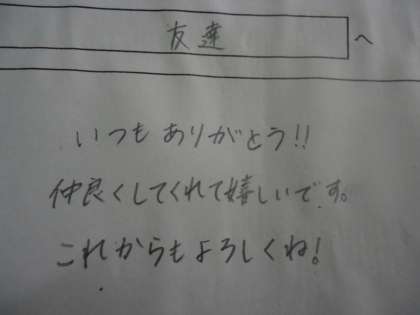 友達 へ
いつもありがとう!!
仲良くしてくれて嬉しいです。
これからもよろしくね!